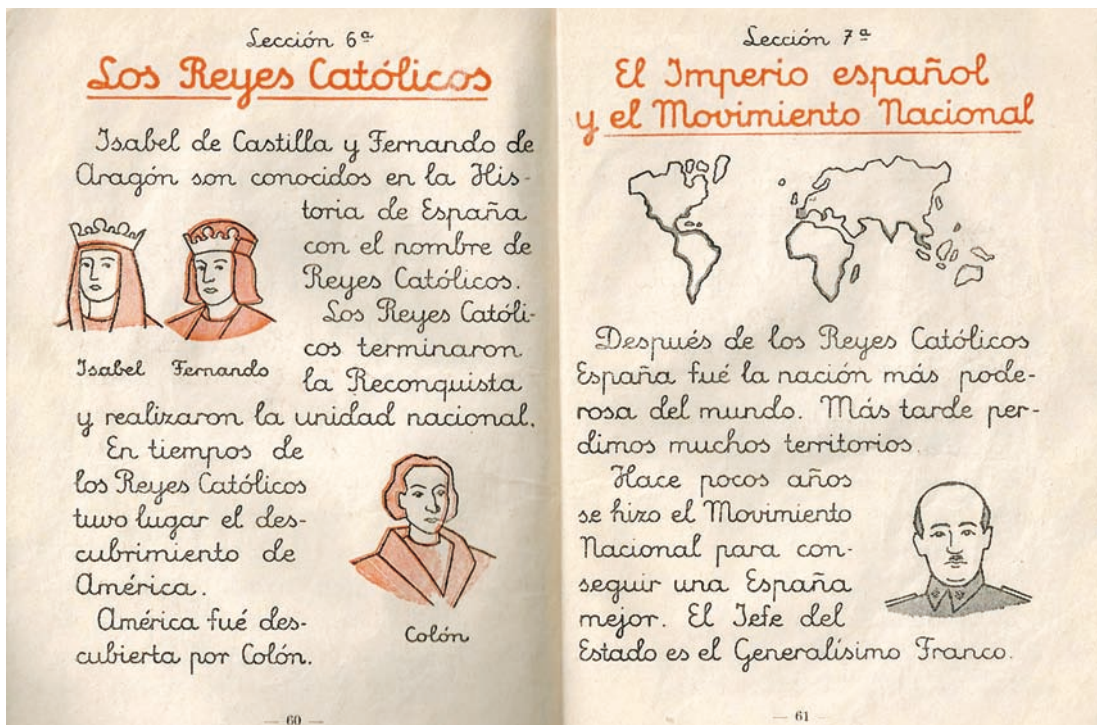 Lección 6ª
Los Reyes Católicos
Isabel de Castilla y Fernando de
Aragón son conocidos en la His-
toria de España
con el nombre de
Reyes Católicos.
Los Reyes Católi-
cos terminaron
la Reconquista
Isabel Fernando
y realizaron la unidad nacional.
En tiempos de
los Reyes Católicos
tuvo lugar el des-
cubrimiento de
América.
América fué des-
cubierta por Colón.
Colón
— 60 —
Lección 7ª
El Imperio español
y el Movimiento Nacional
Después de los Reyes Católicos
España fué la nación más pode-
rosa del mundo. Más tarde per-
dimos muchos territorios.
Hace pocos años
se hizo el Movimiento
Nacional para con-
seguir una España
mejor. El Jefe del
Estado es el Generalísimo Franco.
— 61 —